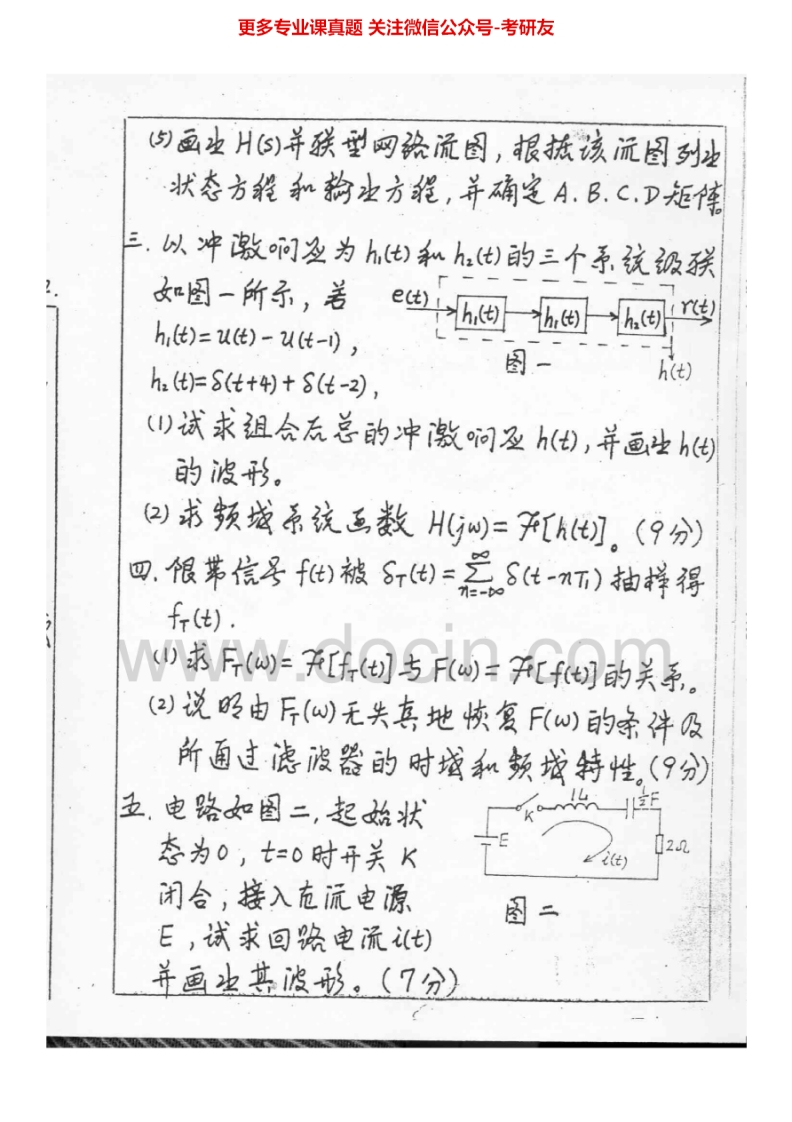 更多专业课真题 关注微信公众号-考研友
(5)画出H(s)并联型网络流图，根据该流图列出
状态方程和输出方程，并确定A.B.C.D矩阵。
三.以冲激响应为h₁(t)和h₂(t)的三个系统级联
如图一所示，若
e(t) h₁(t) h₁(t) h₂(t) r(t)
h₁(t)=u(t)-u(t-1)，
图一 h(t)
h₂(t)=δ(t+4)+δ(t-2)，
(1)试求组合后总的冲激响应h(t)，并画出h(t)
的波形。
(2)求频域系统函数 H(jω)=ℱ[h(t)]。(9分)
四.限带信号f(t)被 δ_T(t)=∑_{n=-∞}^{∞} δ(t-nT₁)抽样得
f_T(t).
www.docin.com
(1)求F_T(ω)=ℱ[f_T(t)]与F(ω)=ℱ[f(t)]的关系。
(2)说明由F_T(ω)无失真地恢复F(ω)的条件及
所通过滤波器的时域和频域特性。(9分)
五.电路如图二，起始状
态为0，t=0时开关K
闭合，接入直流电源
E，试求回路电流i(t)
并画出其波形。(7分)
K
½F
E
i(t)
2Ω
图二